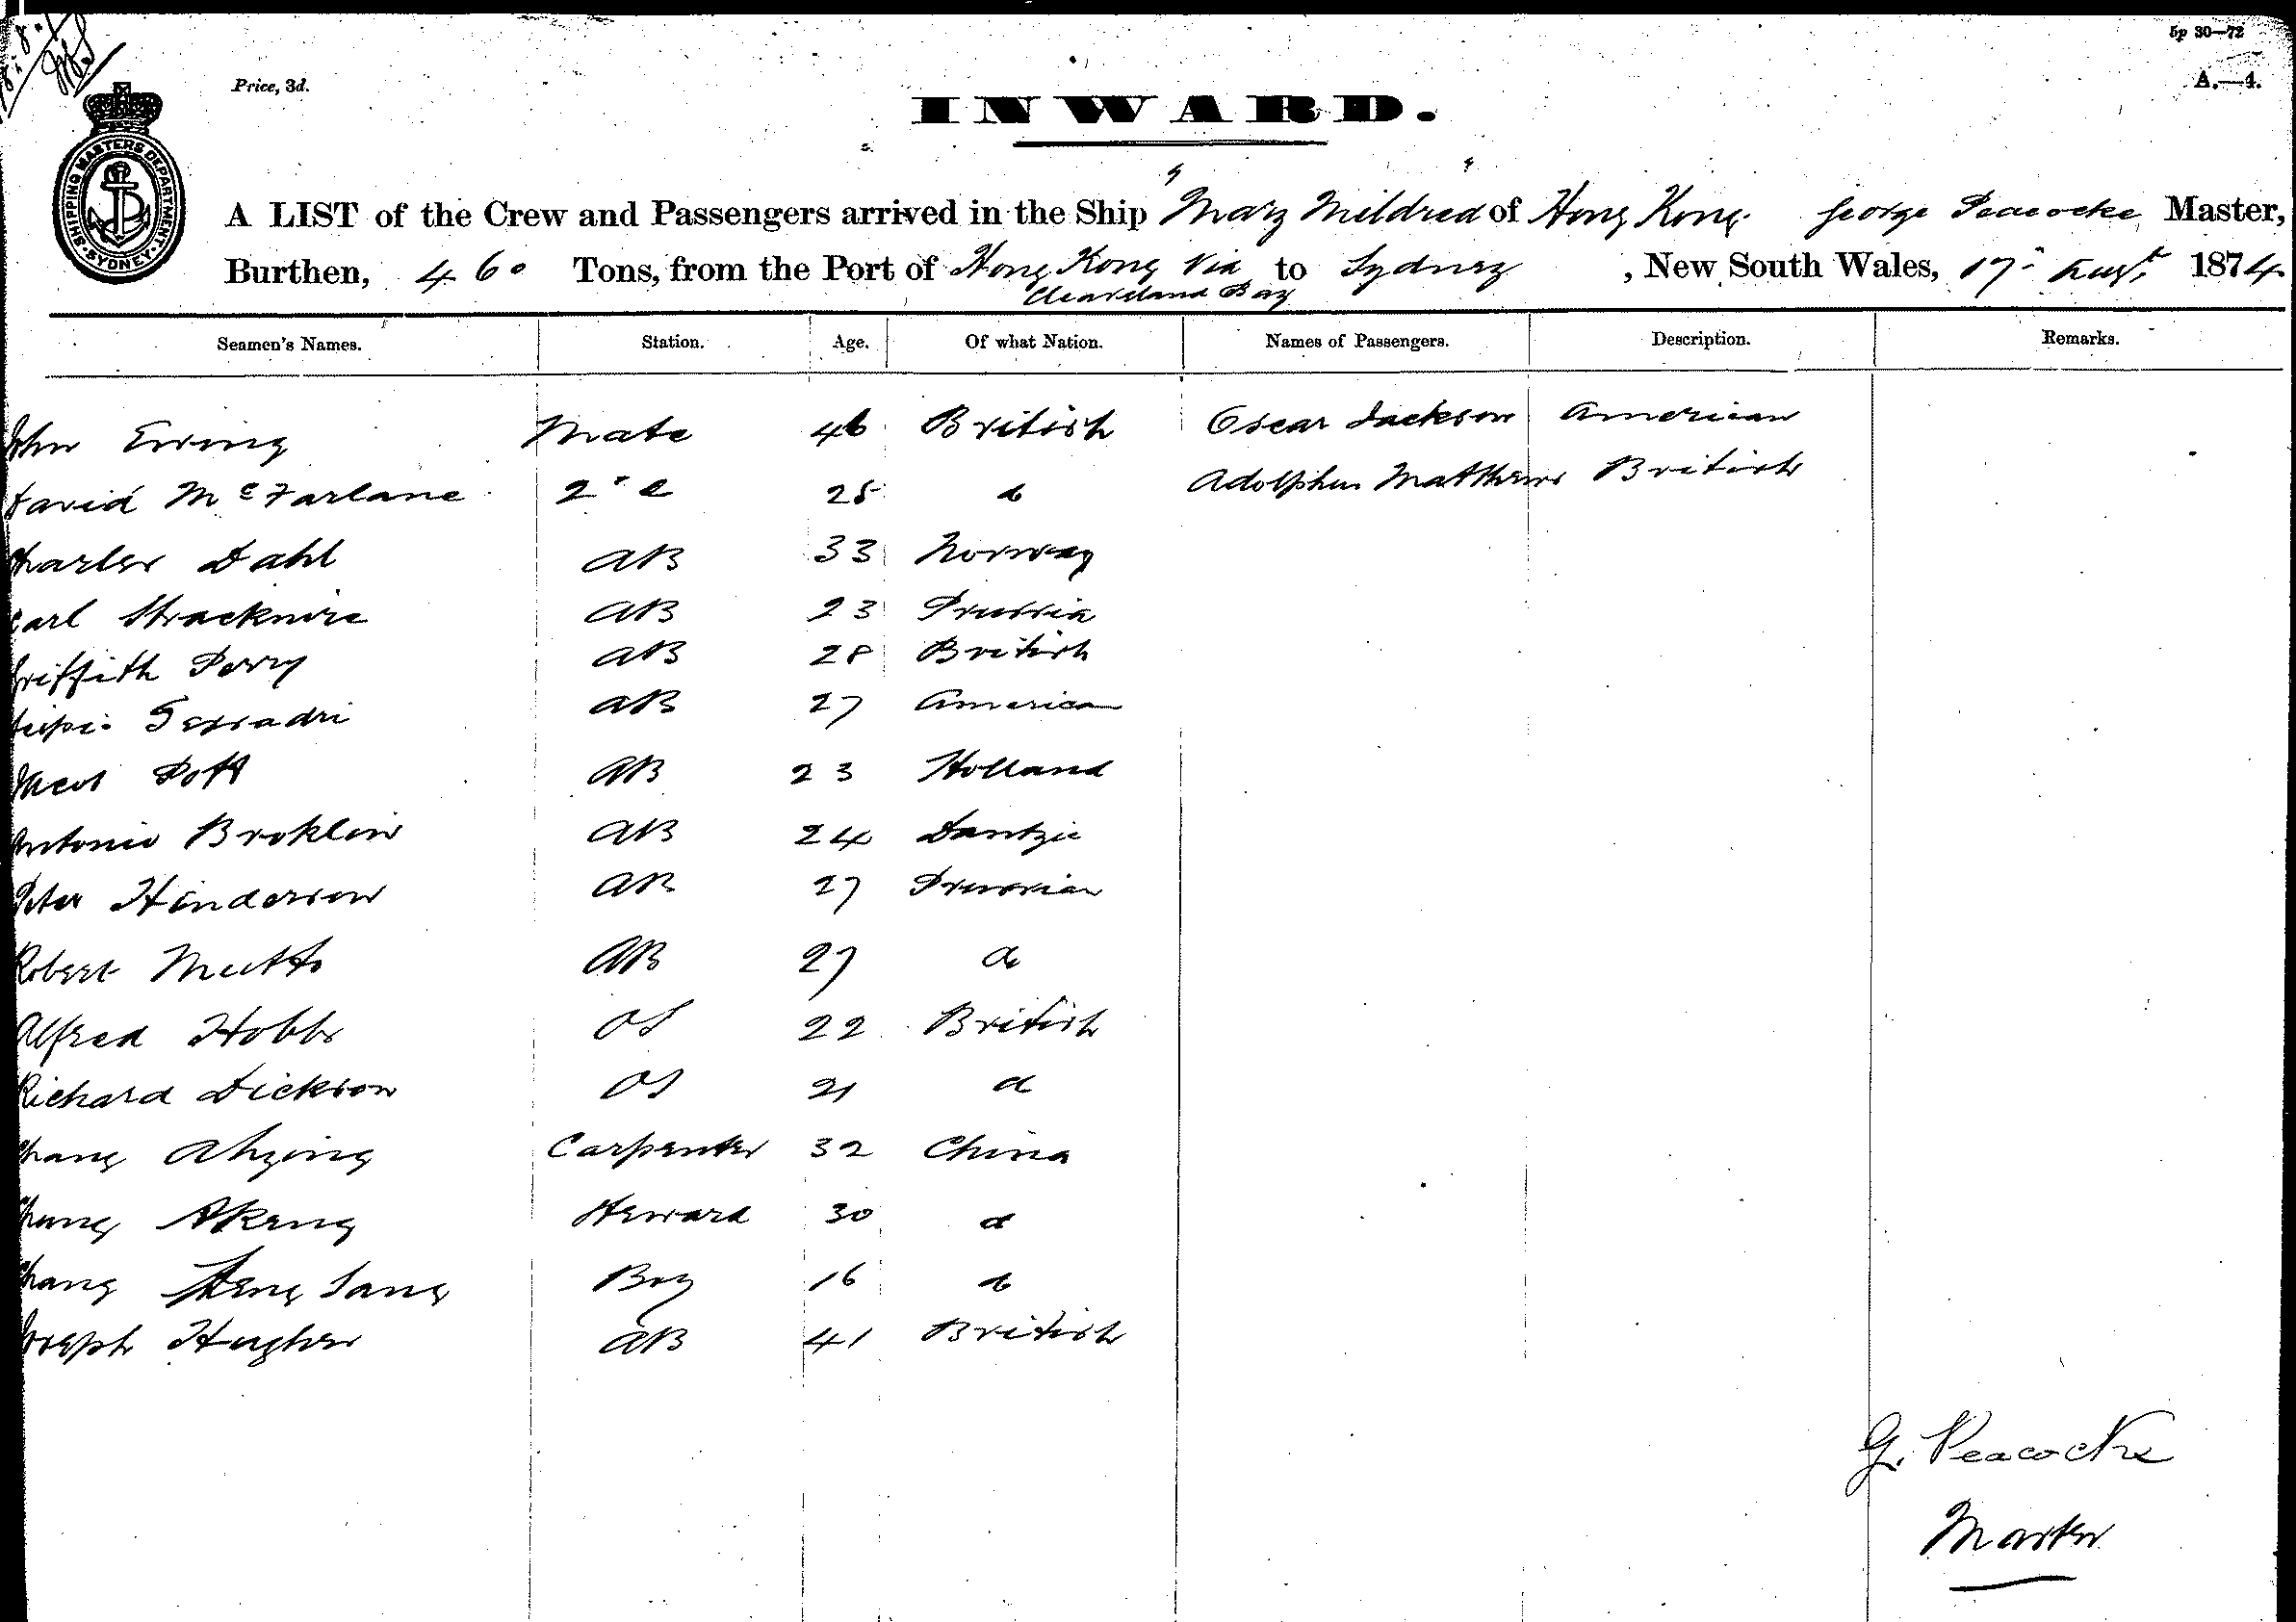 5p 30—72
Price, 3d.
A.—4.
SHIPPING MASTERS DEPARTMENT. SYDNEY.
INWARD.
A LIST of the Crew and Passengers arrived in the Ship "Mary Mildred" of Hong Kong George Peacocke Master,
Burthen, 460 Tons, from the Port of Hong Kong Via Cleaveland Bay to Sydney, New South Wales, 17 Augt 1874
Seamen's Names. Station. Age. Of what Nation. Names of Passengers. Description. Remarks.
John Ewing Mate 46 British Oscar Jackson American
David McFarlane 2d 25 do Adolphus Matthews British
Charles Dahl AB 33 Norway
Carl AB 23 Prussia
Griffith Perry AB 28 British
AB 27 American
Jacob Pott AB 23 Holland
Antonio Broklin AB 24 Dantzic
Peter Hinderson AB 27 Prussian
Robert Mutto AB 27 do
Alfred Hobbs OS 22 British
Richard Dickson OS 21 do
Chang Ahging Carpenter 32 China
Chung Akeng Steward 30 do
Chang Sang Boy 16 do
Joseph Hughes AB 41 British
G. Peacocke
Master